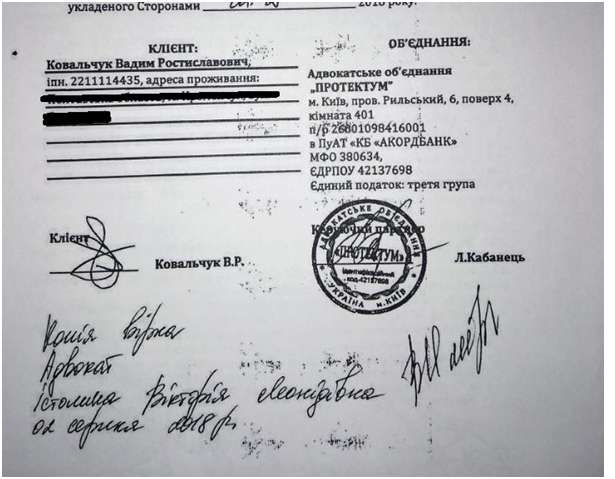 укладеного Сторонами 2018 року.
КЛІЄНТ:
Ковальчук Вадим Ростиславович,
іпн. 2211114435, адреса проживання:
ОБ'ЄДНАННЯ:
Адвокатське об'єднання
„ПРОТЕКТУМ"
м. Київ, пров. Рильський, 6, поверх 4,
кімната 401
п/р 26001098416001
в ПуАТ «КБ «АКОРДБАНК»
МФО 380634,
ЄДРПОУ 42137698
Єдиний податок: третя група
Клієнт
Ковальчук В.Р.
Керуючий партнер
Л.Кабанець
АДВОКАТСЬКЕ ОБ'ЄДНАННЯ
«ПРОТЕКТУМ»
ідентифікаційний
код 42137698
УКРАЇНА м.КИЇВ
Копія вірна
Адвокат
Істоміна Вікторія Леонідівна
02 серпня 2018 р.